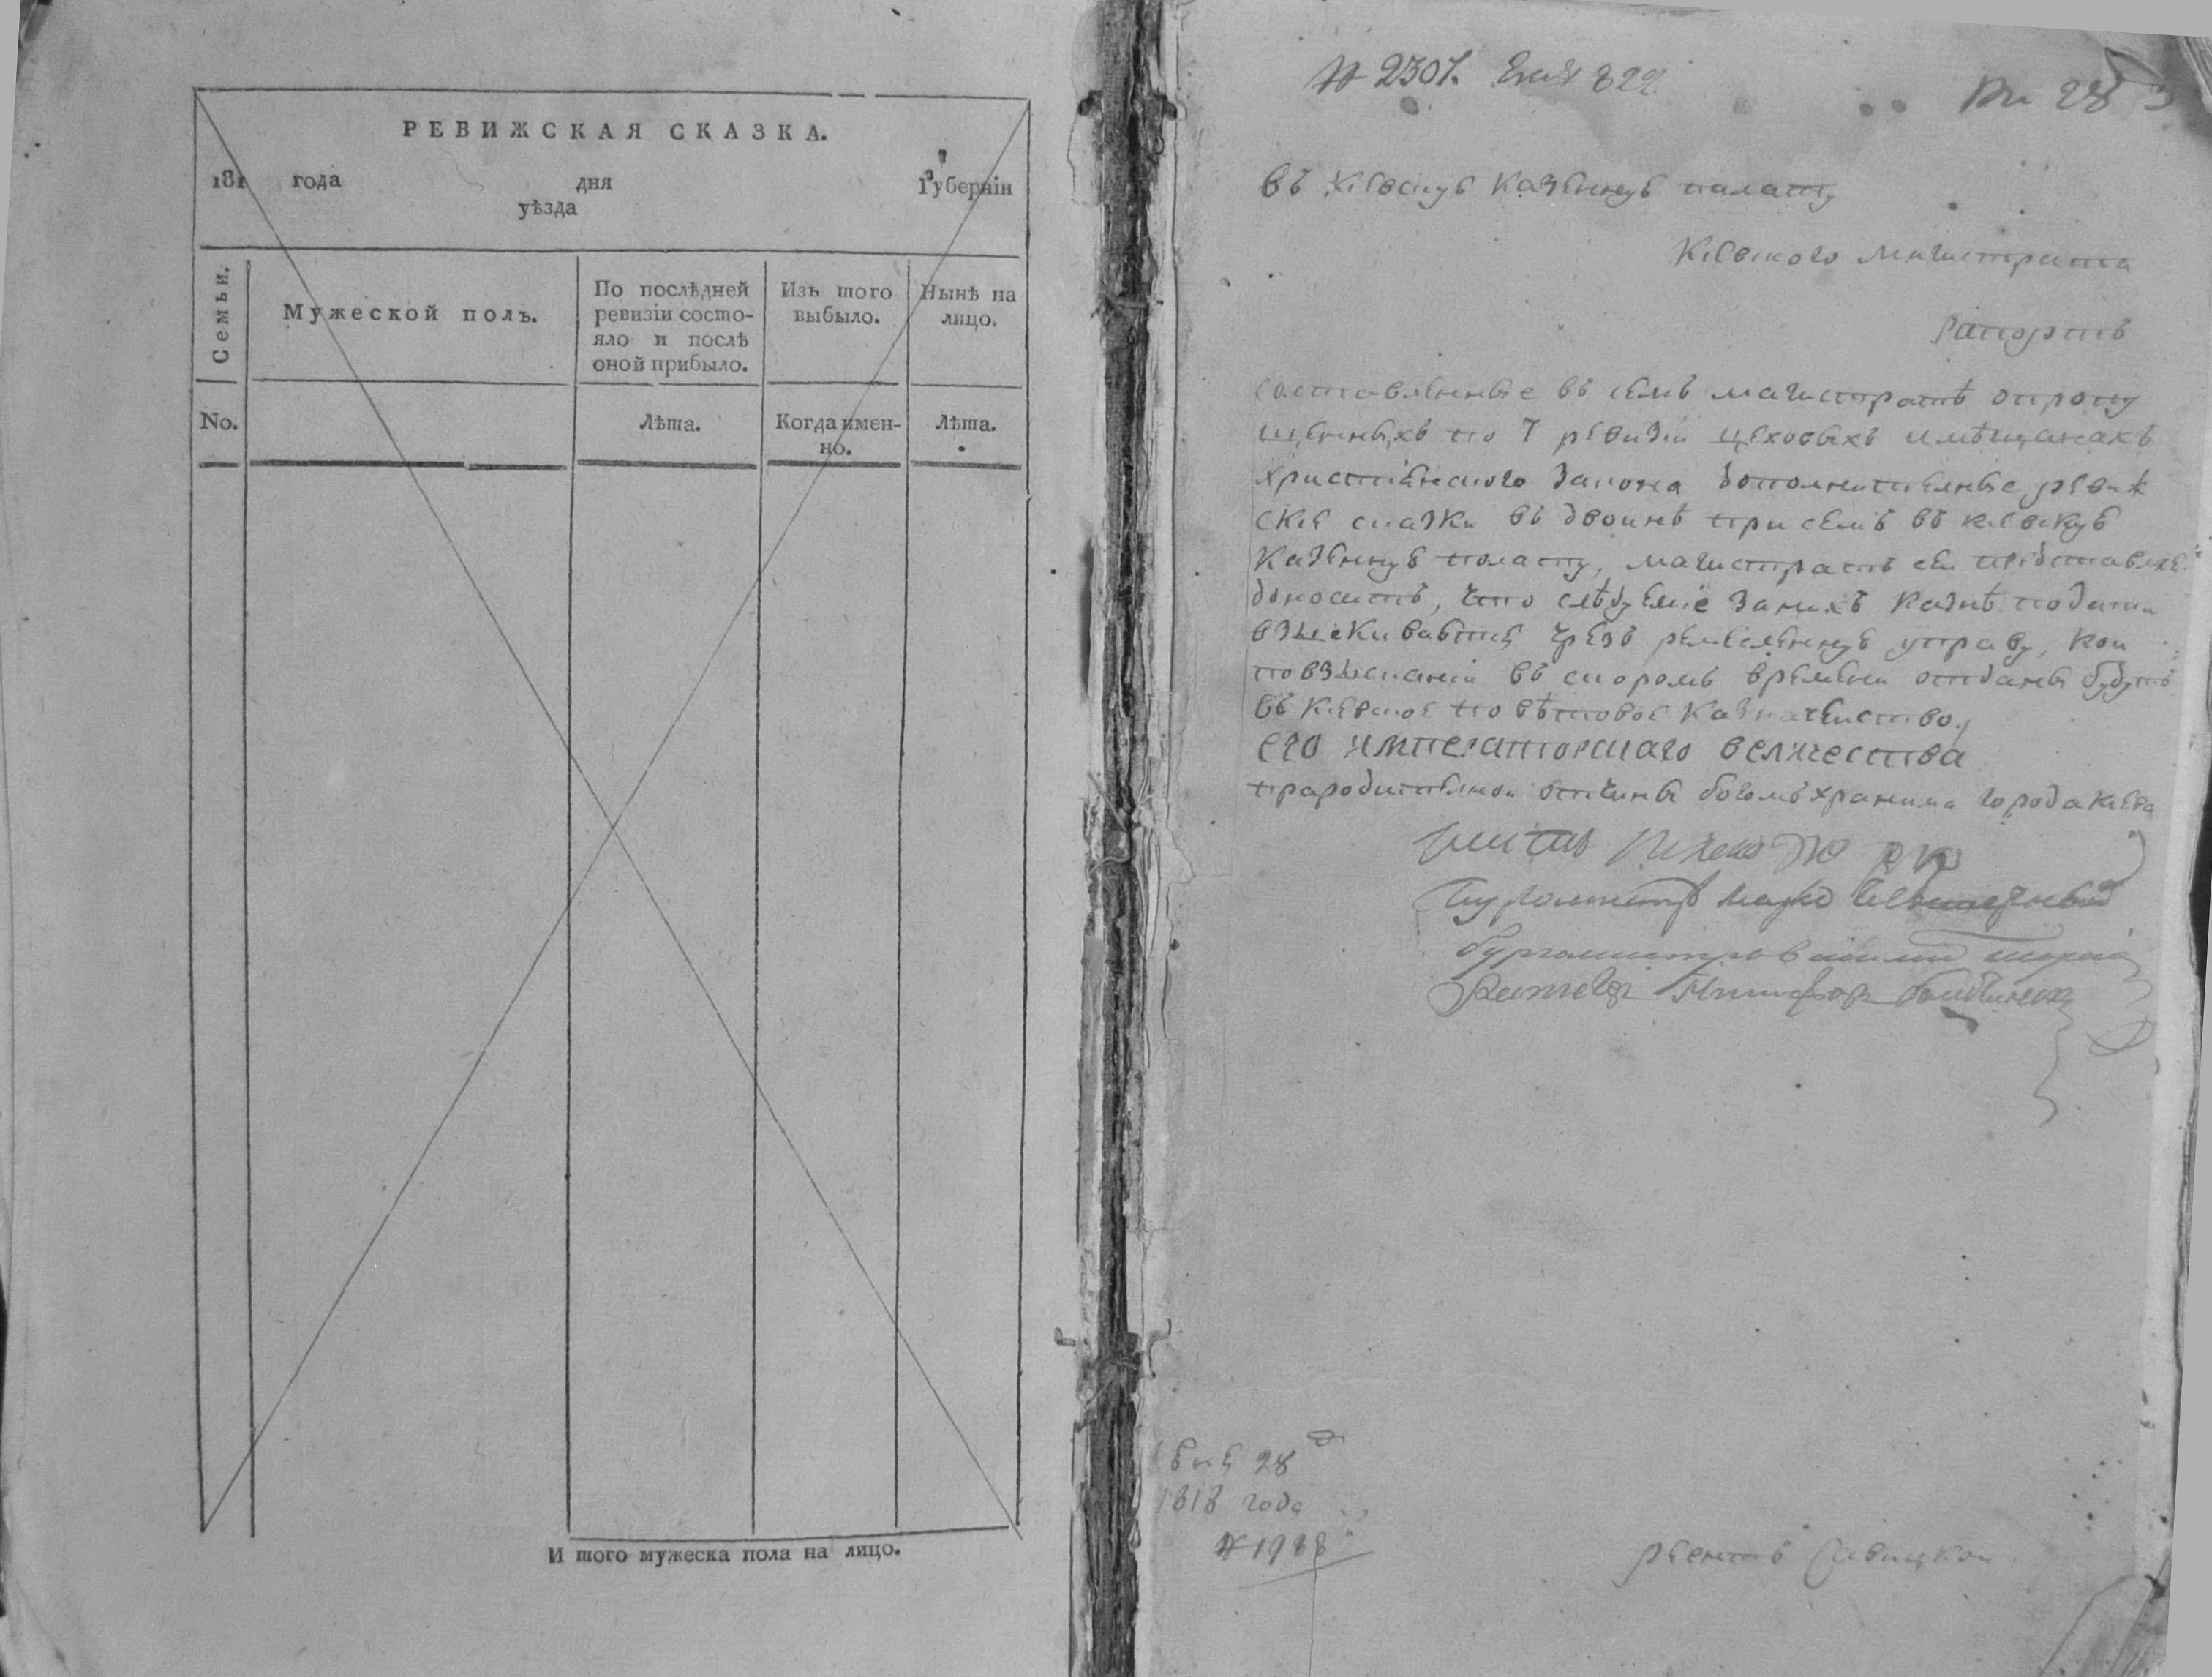 РЕВИЖСКАЯ СКАЗКА.
181 года дня Губернїи
уѣзда
Семьи.
Мужеской полъ.
По послѣдней
ревизїи состо-
яло и послѣ
оной прибыло.
Изъ того
выбыло.
Нынѣ на
лицо.
No.
Лѣта.
Когда имен-
но.
Лѣта.
И того мужеска пола на лицо.
№ 2307.
28
въ Кіевскую Казенную палату
Кіевского Магистрата
Рапортъ
Составленные въ семъ магистратѣ о пропу
щенныхъ по 7 ревизіи цеховыхъ и мѣщанахъ
християнского закона дополнителные ревиж
скіе сказки въ двоинѣ при семъ въ кіевскую
Казенную полату, магистратъ сей представляя
доноситъ, что слѣдуемїе за нихъ казнѣ подати
взыскиваются чрезъ ремесленную управу, кои
по взысканіи въ скоромъ времени отданы будутъ
въ Кіевское повѣтовое Казначейство.
ЕГО ИМПЕРАТОРСКАГО ВЕЛИЧЕСТВА
прародителной отчины богомъ хранима города Кіева
Бурмистръ
бургомистръ
Ратсгеръ
28
1818 года
№ 1988